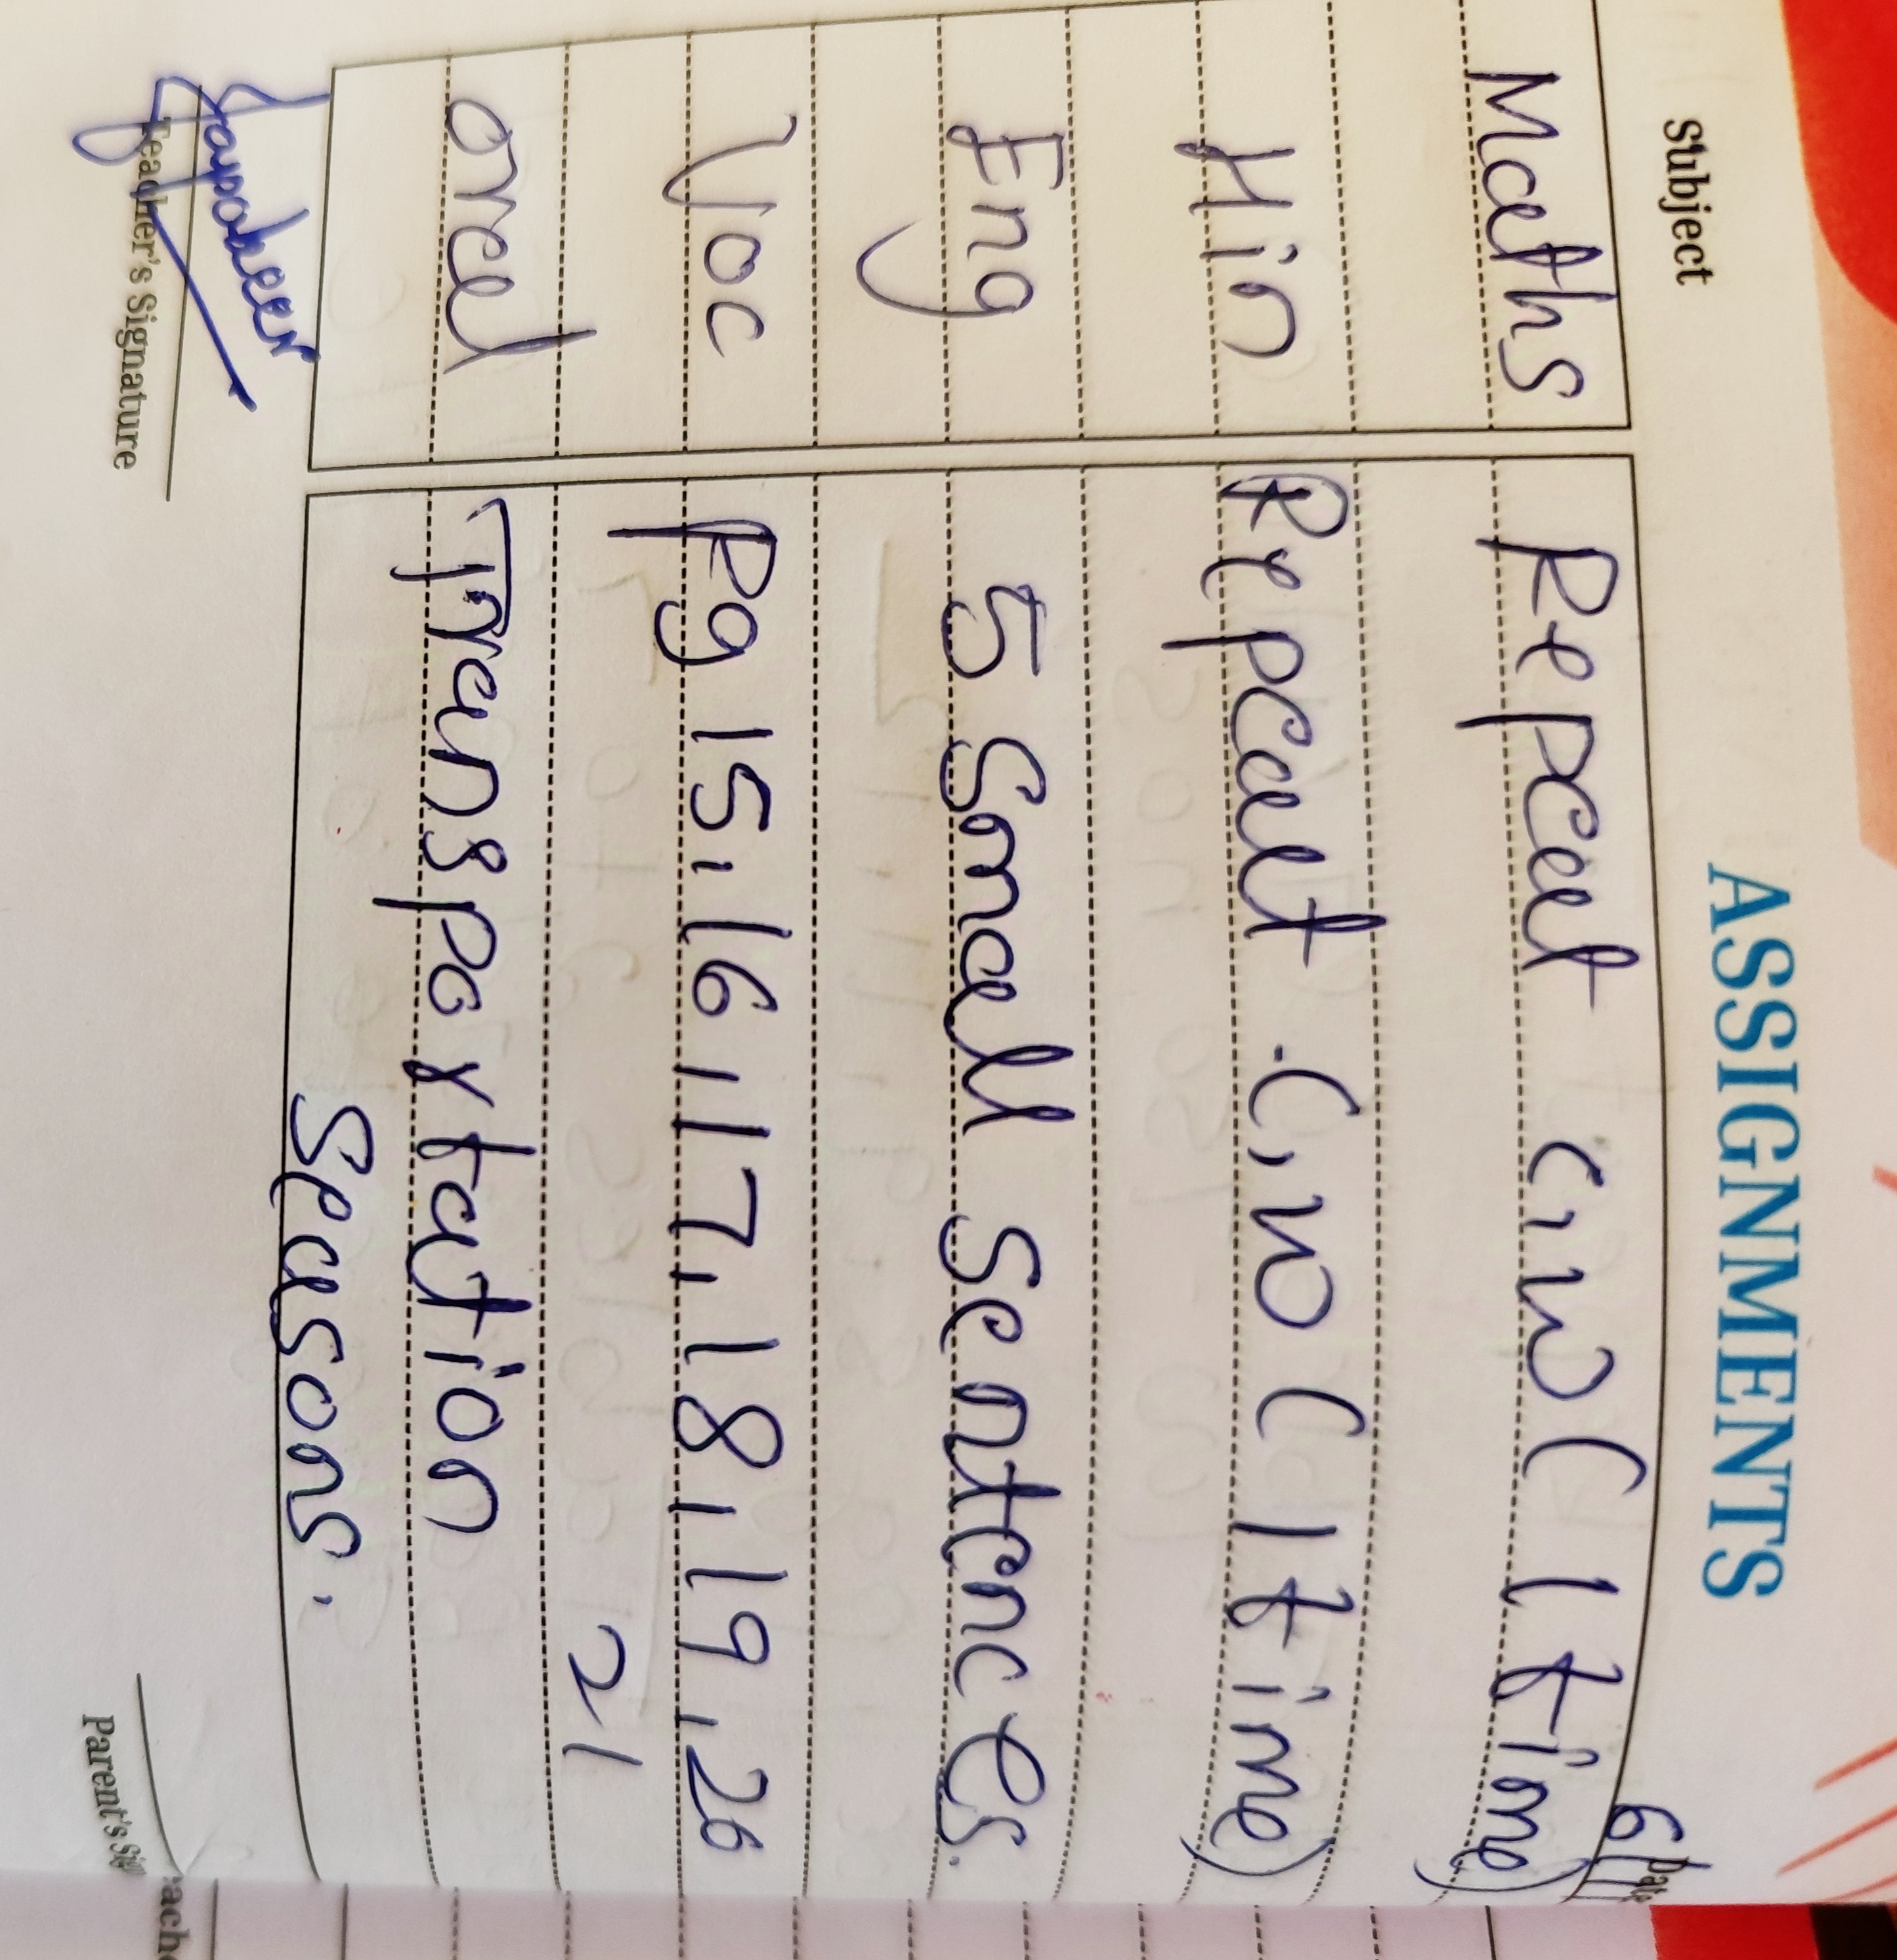 ASSIGNMENTS
Subject
Maths Repeat C.W (1 time)
Hin Repeat C.W (1 time)
Eng 5 Small Sentences.
Voc Pg 15, 16, 17, 18, 19, 20
21
Oral Transportation
Seasons.
Teacher's Signature